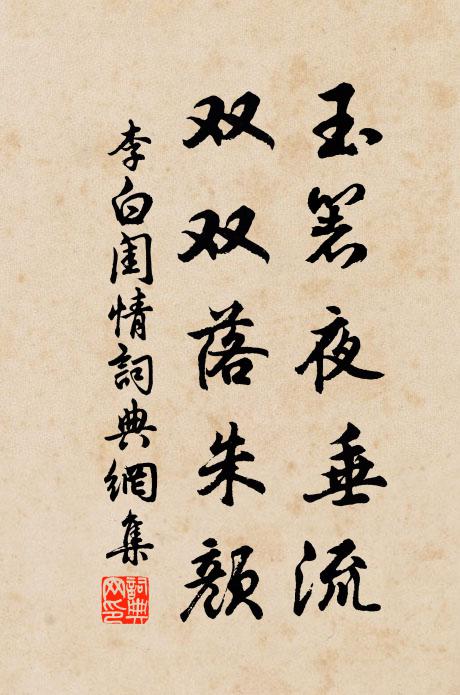 玉箸夜垂流
双双落朱颜
李白闺情詞典網集
詞典网印